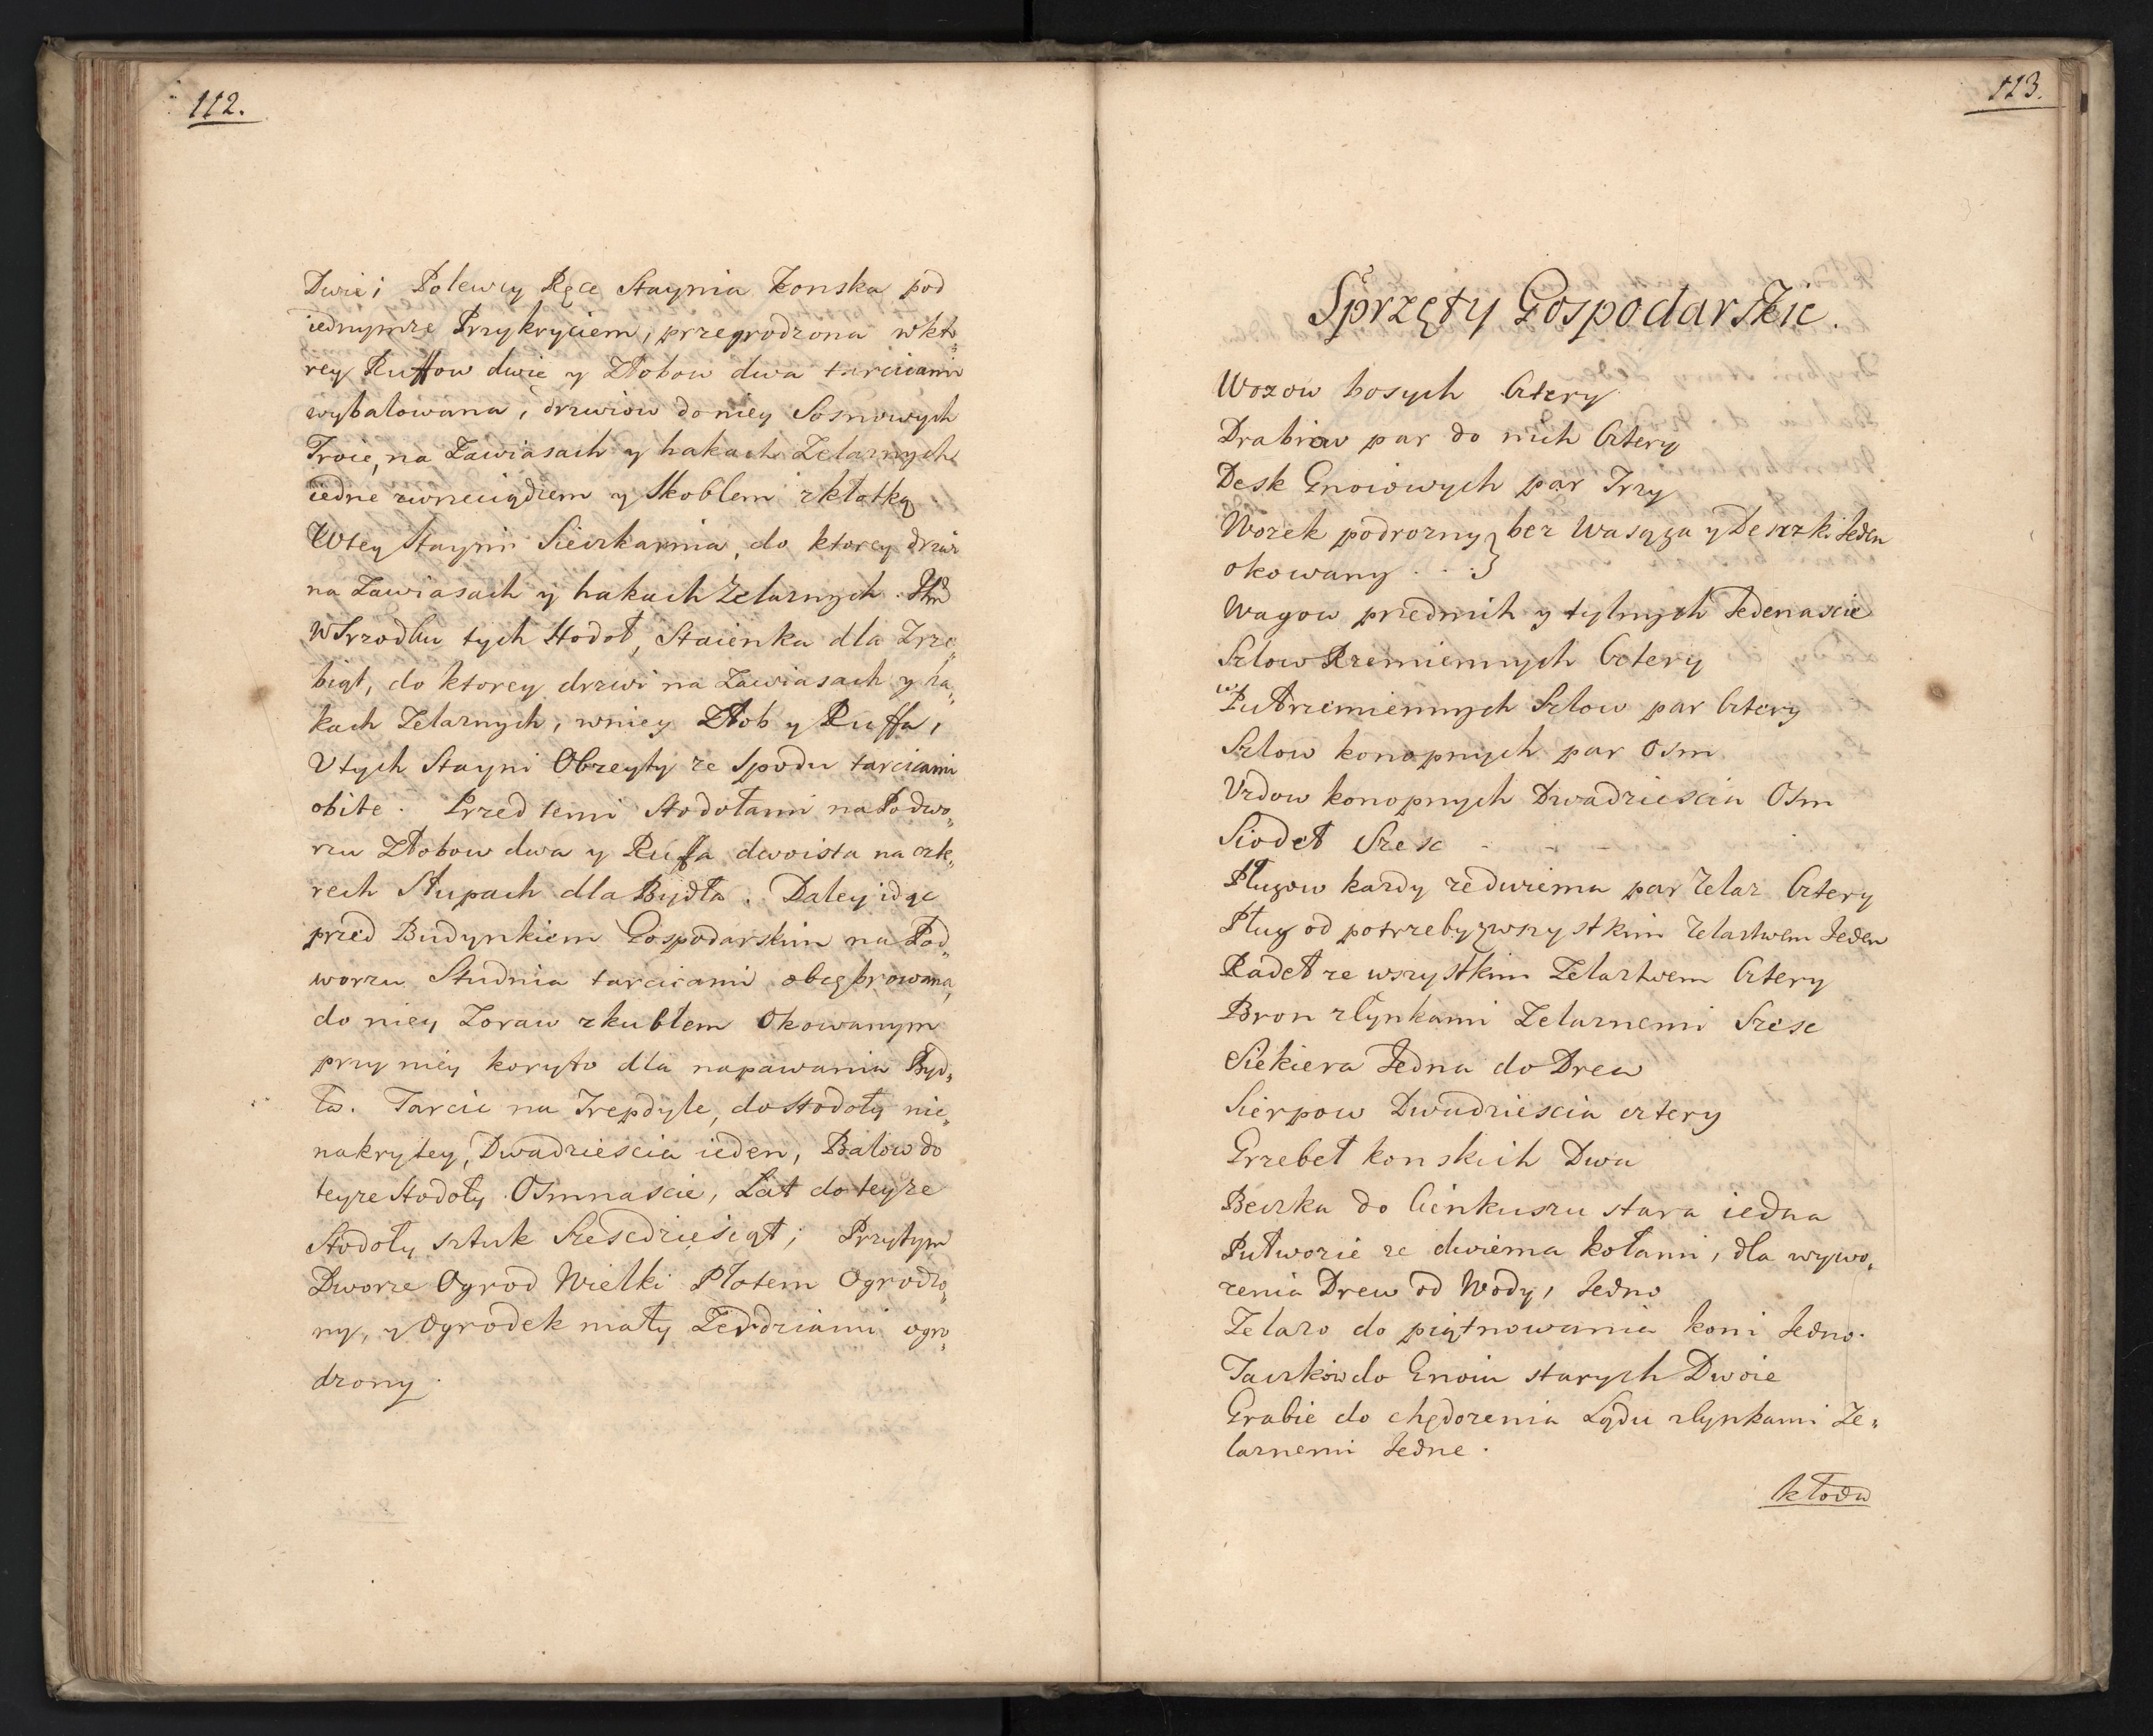 112.
Dwie; Polewey Ręce Staynia konska pod
iednymze Przykryciem, przegrodzona wkto„
rey Ruffow dwie y Złobow dwa tarcicami
wybalowana, drzwiow doniey Sosnowych
Troie, na Zawiasach y hakach Zelaznych
iedne zwrzeciądzem y Skoblem zkłotką
Wtey Stayni Sieczkarnia, do ktorey drzwi
na Zawiasach y hakach Zelaznych.
WSrzodku tych Stodoł, Staienka dla Zrze„
biąt, do ktorey drzwi na Zawiasach y ha„
kach Zelaznych, wniey Złob y Ruffa,
Utych Stayni Obzeyty ze Spodu tarcicami
obite. Przed temi Stodołami na Podwo„
rzu Złobow dwa y Ruffa dwoista na czte„
rech Słupach dla Bydła. Daley idąc
przed Budynkiem Gospodarskim na Pod„
worzu Studnia tarcicami obcębrowana,
do niey Zoraw zkubłem Okowanym
przy niey koryto dla napawania Byd„
ła. Tarcic na Trepdyle, do Stodoły nie„
nakrytey, Dwadziescia ieden, Balow do
teyze Stodoły Osmnascie, Łat do teyze
Stodoły sztuk Szescdziesiąt; Przytym
Dworze Ogrod Wielki Płotem Ogrodzo„
ny, y Ogrodek mały Zerdziami ogro„
dzony.
113.
Sprzęty Gospodarskie.
Wozow bosych Cztery
Drabiow par do nich Cztery
Desk Gnoiowych par Trzy
Wozek podrozny } bez Wasąga y Deszki Jeden
okowany . . }
Wagow przednich y tylnych Jedenascie
Szlow Rzemiennych Cztery
w Pułrzemiennych Szlow par Cztery
Szlow konopnych par Osm
Uzdow konopnych Dwadziescia Osm
Siodeł Szesc - -
Pługow kazdy zedwiema par Zelaz Cztery
Pług od potrzeby zwszystkim Zelastwem Jeden
Radeł ze wszystkim Zelastwem Cztery
Bron zlynkami Zelaznemi Szesc
Siekiera Jedna do Drew
Sierpow Dwadziescia cztery
Grzebeł konskich Dwa
Beczka do Cienkuszu stara iedna
Pułwozie ze dwiema kołami, dla wywo„
zenia Drew od Wody, Jedno
Zelazo do piątnowania koni Jedno.
Taczkow do Gnoiu starych Dwoie
Grabie do chędozenia Lądu zlynkami Ze„
laznemi Jedne.
kłoda